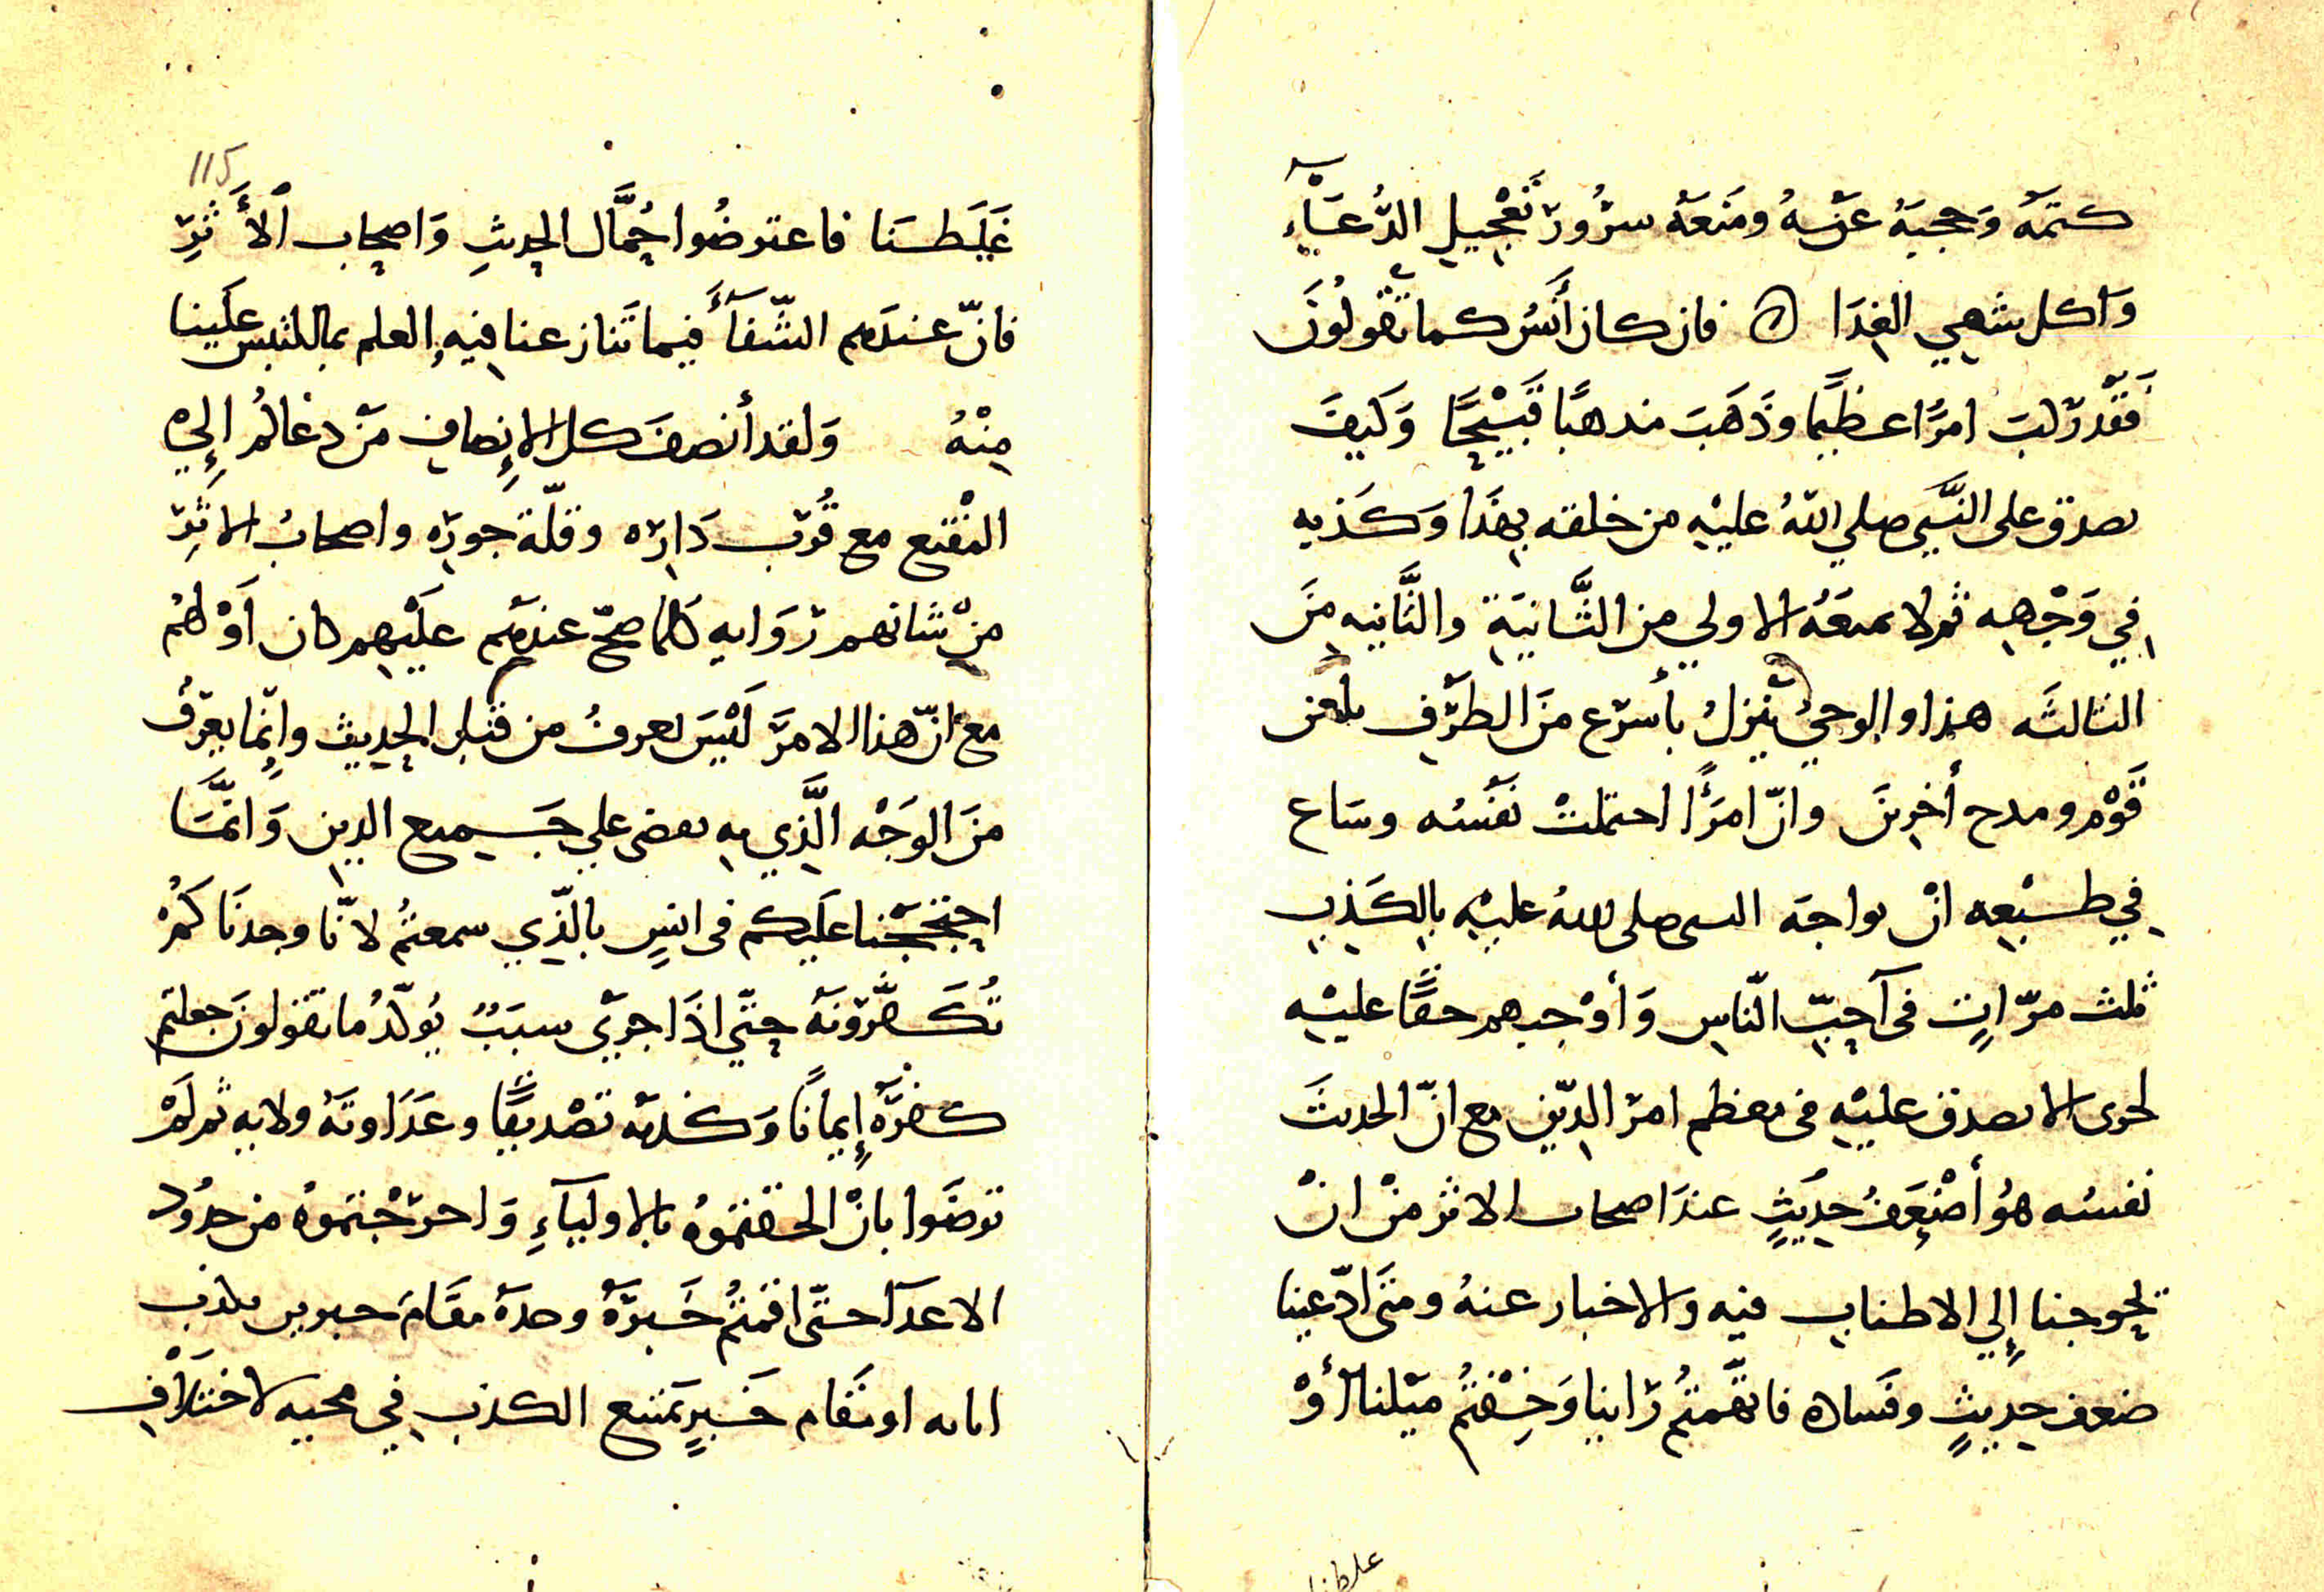 كتمَهُ وَحجبَهُ عنْ سُهُ ومنَعَهُ سرُورَ تَعْجيلِ الدُّعَآءِ
وَاكل شهي الغِدَا ۞ فان كان أَنَسٌ كما تقُولُونَ
فَقَدْ ركبَ امرًا عظيمًا وذَهَبَ مذهبًا قَبيْحًا وَكَيفَ
يصدق على النَّبيّ صلي اللهُ عليْهِ من خلقته بِهَذَا وَكَذبه
فِي وَجْهِهِ ثم لا تمنَعَهُ الاولي من الثَّانيَةِ والثَّانيه مِنَ
الثالثَه هذا والوحيُ ينزلُ بأسرَع منَ الطرْفِ بلعن
قَوْمٍ ومدح أخرينَ وانّ امرَأً احتملتْ نَفسُه وسَاع
فِي طَبْعِه انْ يواجهَ النبي صلى اللهُ عليْهِ بِالكَذِبِ
ثلث مرّاتٍ فى أحبّ النّاسِ وَأوْجبهم حقًّا عليْهِ
لحرى الا يصدق عليْهِ فى معظم امر الدِّين مع انّ الحديثَ
نفسُه هوُ أضْعَفُ حدِيثٍ عندَ اصحاب الاثر منْ انْ
تحوجنا إلي الاطنابِ فيه والاخبار عنهُ ومتى ادّعينا
ضعف حديثٍ وفسَاده فاتّهمتُم رَاينا وَخِفْتُم ميْلنا أوْ
غلطنا
115
غَلَطَنَا فاعترضُوا حُمَّال الحِديثِ وَاصحاب الأَثَرِ
فانّ عندَهم الشّفآءَ فيما تَنازعنا فيهِ والعلم بما التبس علَينا
مِنْهُ وَلقد أنصفَ كل الإنصاف مَنْ دعاكُم إلي
المقْنع مع قُرْب دَارِه وقلّة جورِه واصحابُ الاثَرِ
مِنْ شانهم رَوَايه كلما صحّ عندهُم عليْهِم كان أوْ لهُم
مع انّ هذا الامرَ لَيْسَ يعرفُ من قبلِ الحِديث وإنّما يعرَفُ
منَ الوَجْه الَّذي به يقضى علي جَميع الدين وَانمَّا
احتججْنا علَيكم فى انسٍ بالّذي سمعتُم لانّا وجدنَاكُمْ
تُكَفّرُونَهُ حتّي اذَا جري سبَبٌ يُولّدُ ما تقولونَ جعلتم
كفرَهُ إيمانًا وَكذبَهُ تصْديقًا وعَدَاوتَهُ ولايه ثم لَمْ
ترضَوا بانْ الحقتموُه بالاوليَآءِ وَاخرَجْتموُه من حدُود
الاعدَآ حتّى اقمتُم خَبرَهُ وحدَهُ مقَامَ خبرين بلاَ
امانه او مقَام خَبرٍ يَمتنع الكذب فِي مجيه لاختلاَفِ